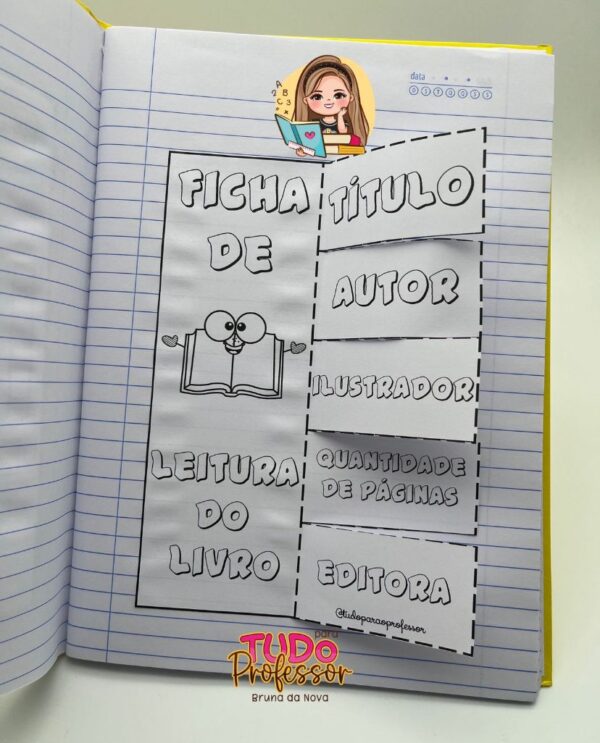 data
FICHA
DE
LEITURA
DO
LIVRO
TÍTULO
AUTOR
ILUSTRADOR
QUANTIDADE
DE PÁGINAS
EDITORA
@tudoparaoprofessor
para
TUDO
Professor
Bruna da Nova
A
B
C